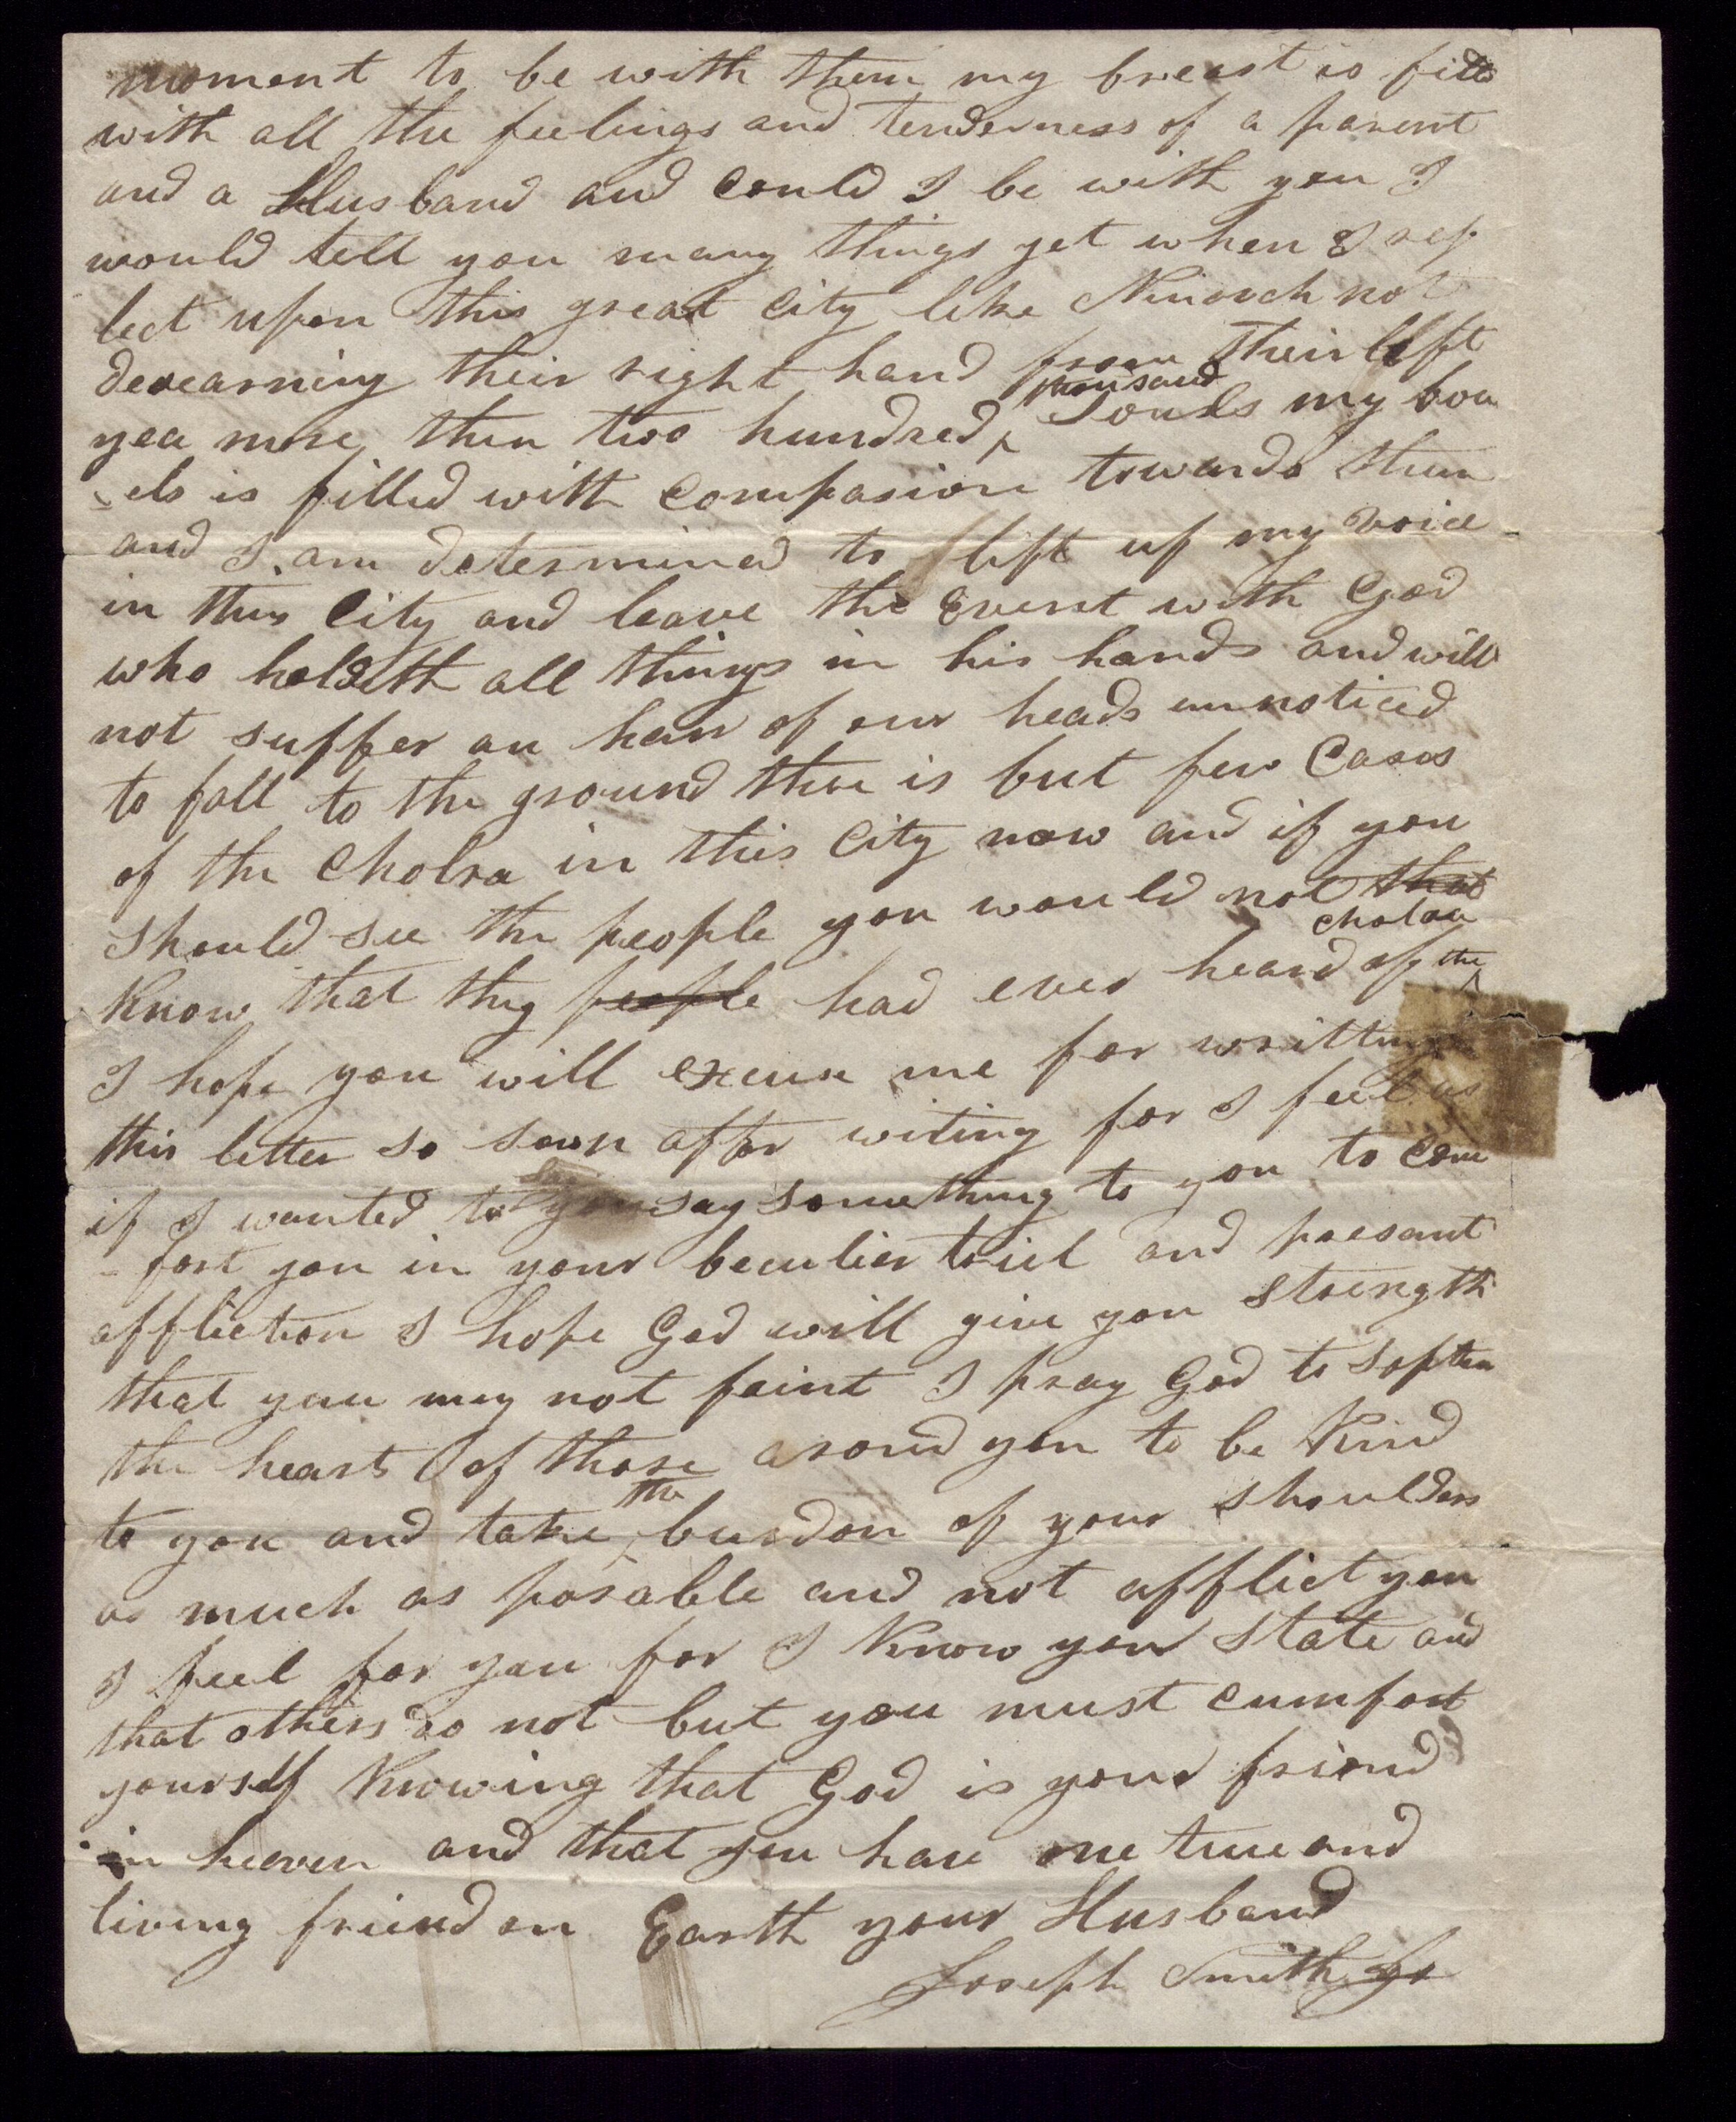 moment to be with them my breast is filld
with all the feelings and tenderness of a parent
and a Husband and could I be with you I
would tell you many things yet when I ref
lect upon this great City like Ninevah not
desearning their right hand from their left
yea more then two hundred thousand Souls my bow
-els is filled with Compasion towards them
and I am determined to lift up my voice
in this City and leave the Event with God
who holdeth all things in his hands and will
not suffer an hair of our heads unnoticed
to fall to the ground there is but few Cases
of the Cholra in this City now and if you
should see the people you would not that
Know that they people had ever heard of the cholara
I hope you will excuse me for writting
this letter so soon after writing for I feel as
if I wanted to you say something to you to com
-fort you in your beculier triel and presant
affliction I hope God will give you strength
that you may not faint I pray God to soften
the hearts of those arond you to be Kind
to you and take the burdon of your shoulders
as much as posable and not afflict you
I feel for you for I Know you State and
that others do not but you must cumfort
yourself Knowing that God is your friend
in heaven and that you have one true and
living friend on Earth your Husband
Joseph Smith Jr